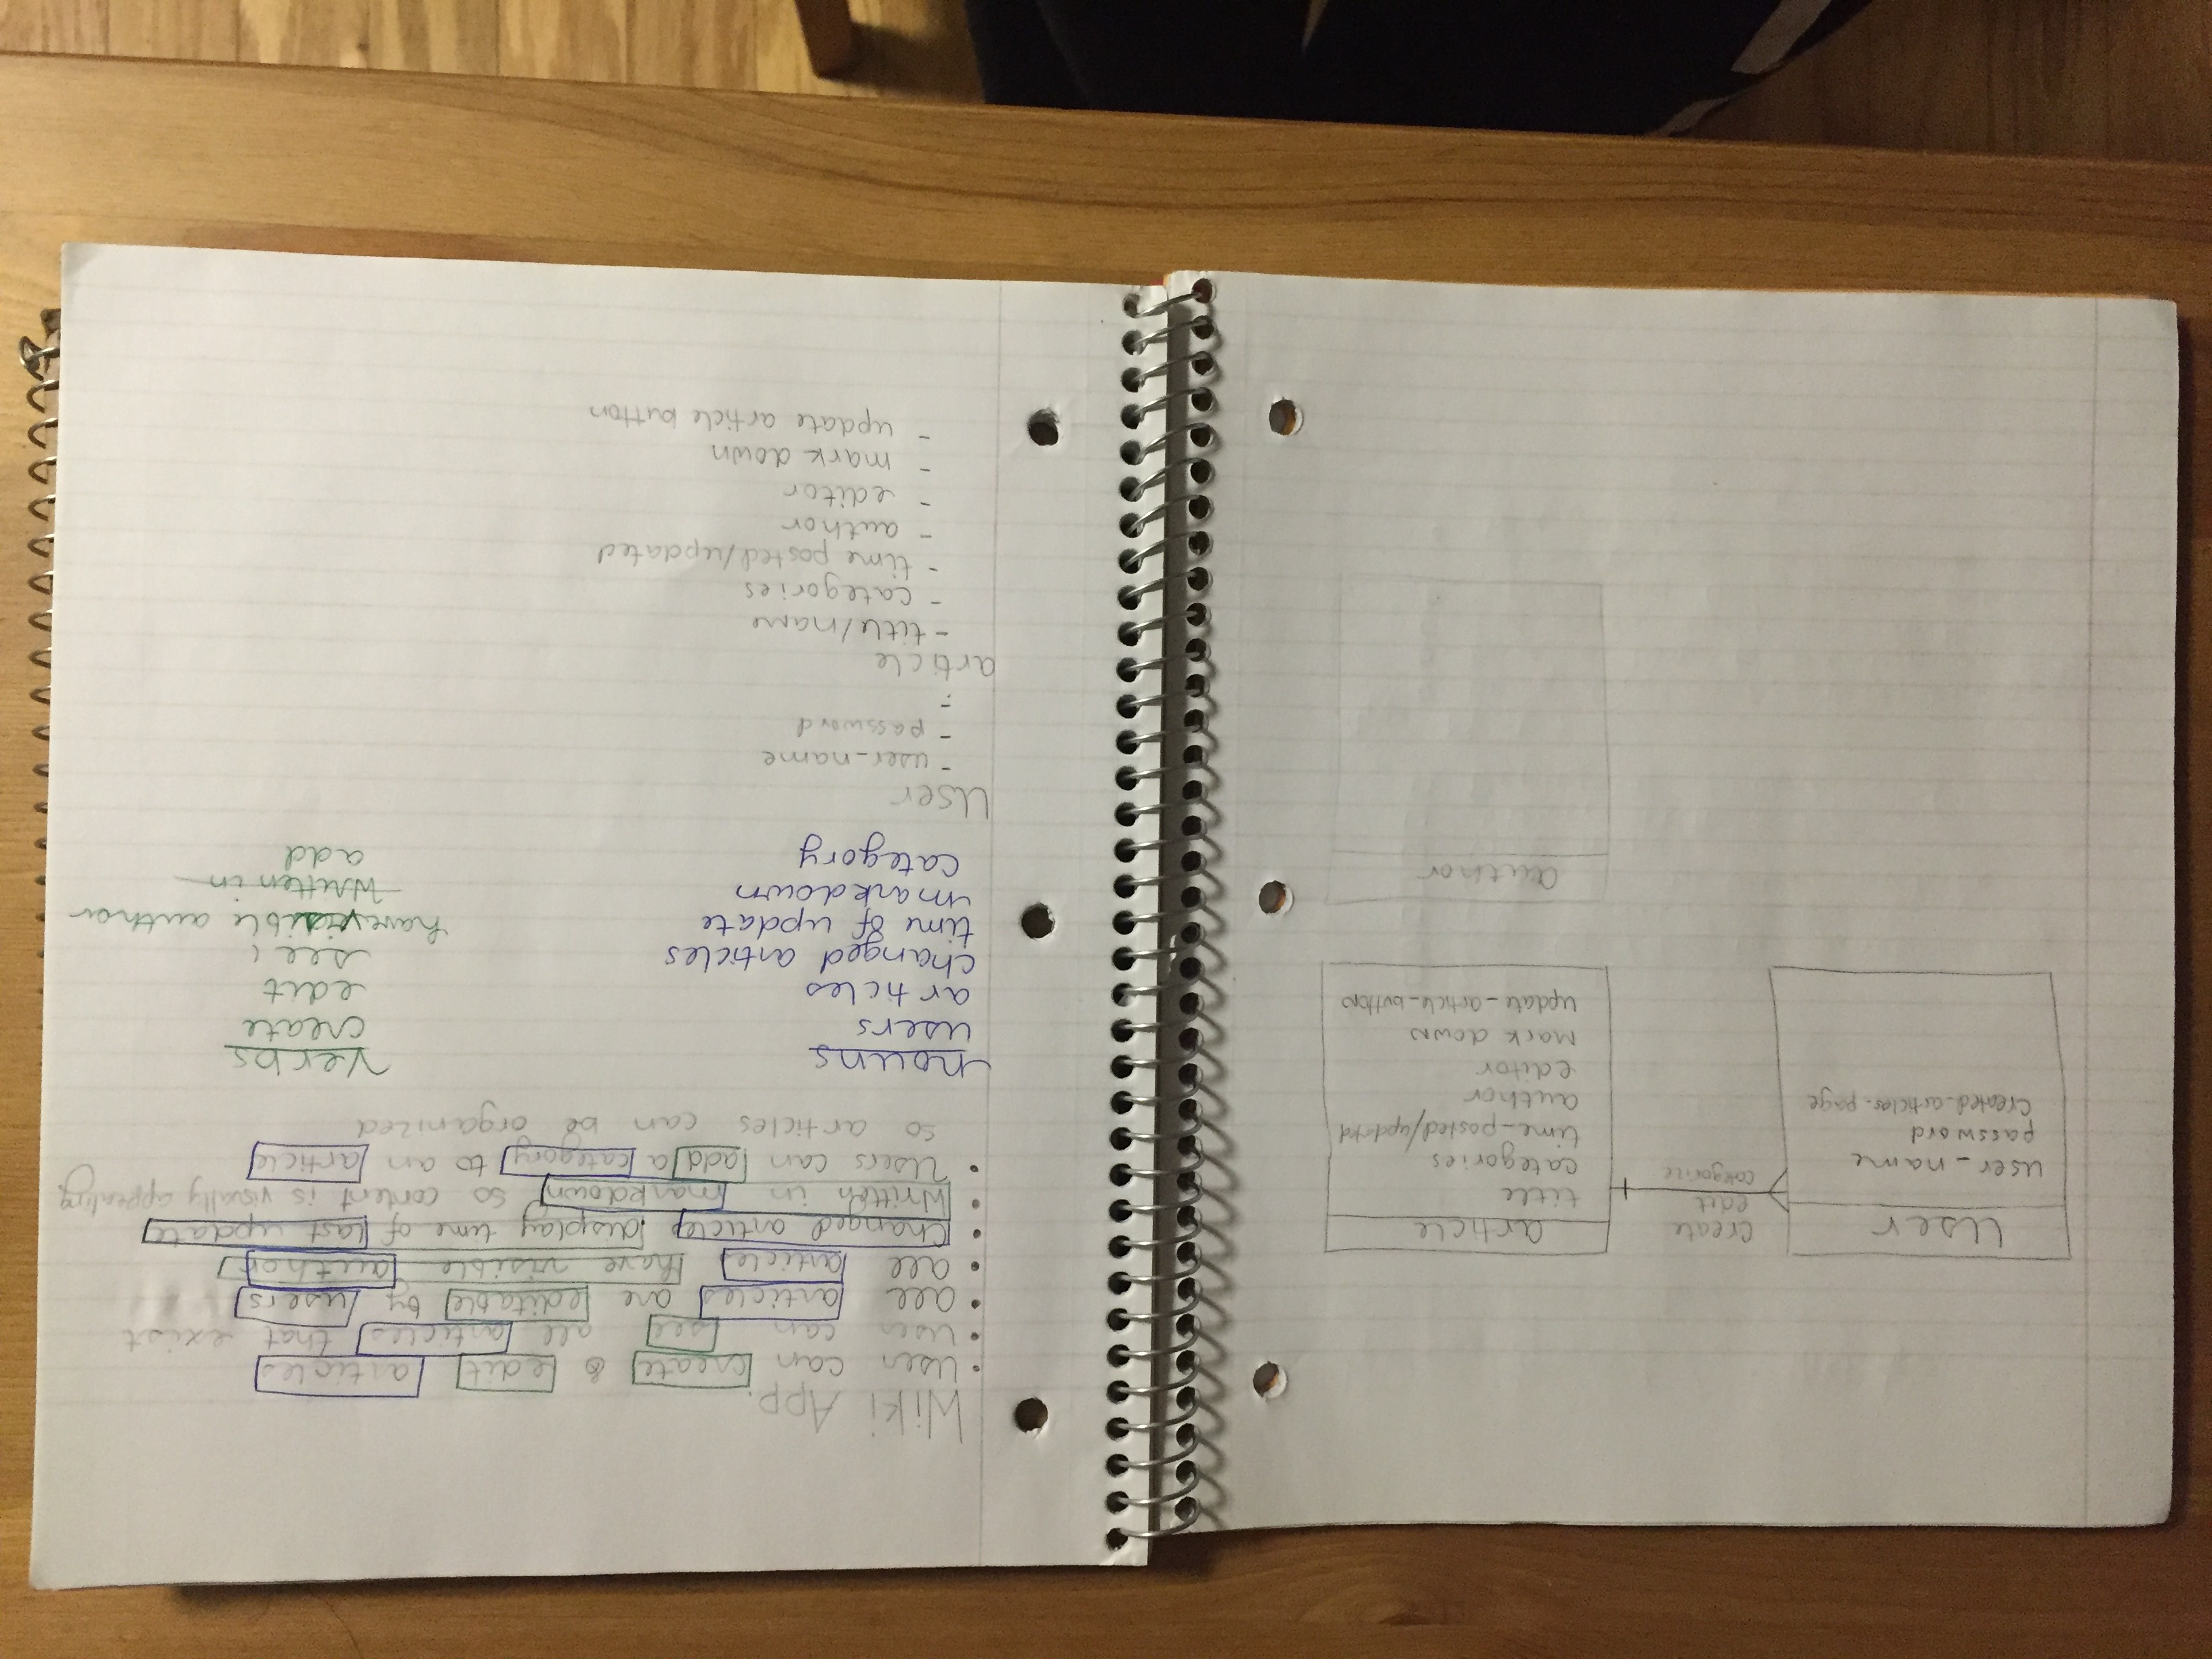 User
user_name
password
created_articles_page
create
edit
categorize
article
title
categories
time_posted/updated
author
editor
mark down
update_article_button
author
Wiki App.
• User can create & edit articles
• User can see all articles that exist
• all articles are editable by users
• all article have visible author
• changed articles display time of last update
• Written in markdown so content is visually appealing
• Users can add a category to an article
so articles can be organized
nouns
users
articles
changed articles
time of update
markdown
category
Verbs
create
edit
see
have visible author
written in
add
User
- user_name
- password
-
article
- title/name
- categories
- time posted/updated
- author
- editor
- mark down
- update article button